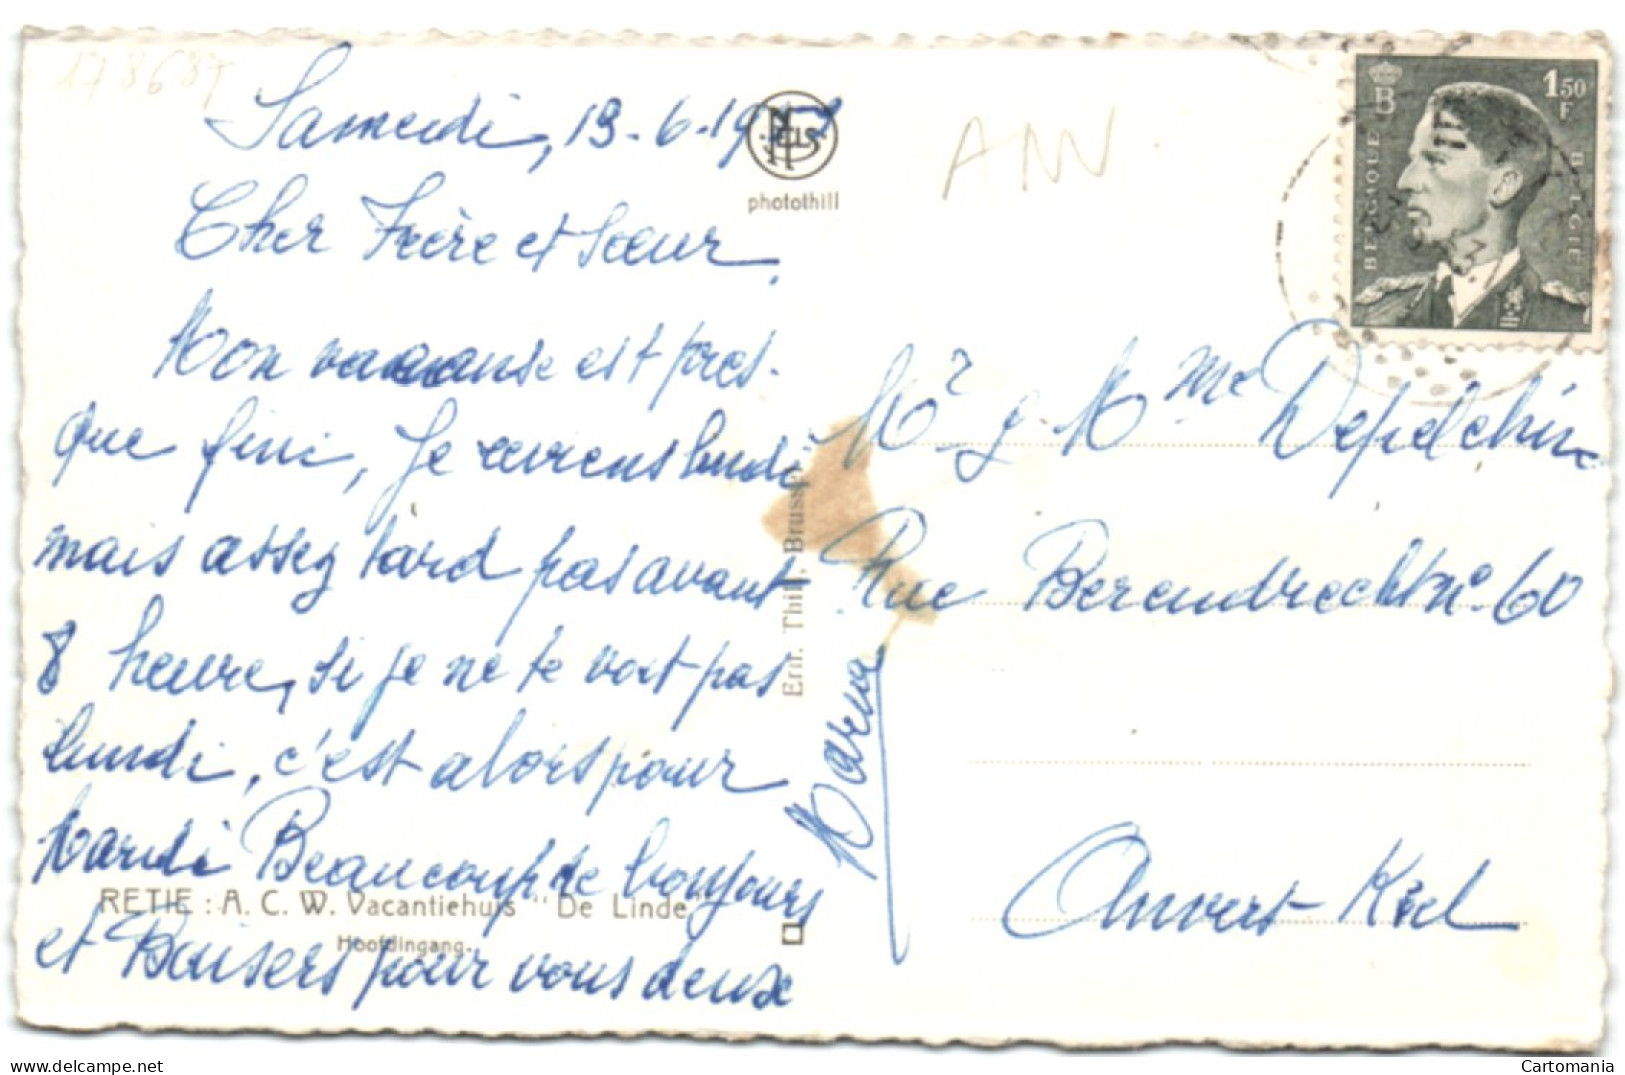 178687
Samedi, 13-6-19
NELS
photothill
ANV.
Cher Frère et Sœur,
Mon vacanse est pres-
que fini, je reviens lundi
mais assez tard pas avant
8 heure, si je ne te voit pas
lundi, c'est alors pour
Mardi Beaucoup de bonjours
et Baisers pour vous deux
Maria
RETIE : A. C. W. Vacantiehuis "De Linde"
Hoofdingang.
Ern. Thill, Brussel
1 50 F
B
BELGIQUE
BELGIË
Mr & Mme Depelchin
Rue Berendrecht no. 60
Anvers-Kiel
delcampe.net
Cartomania